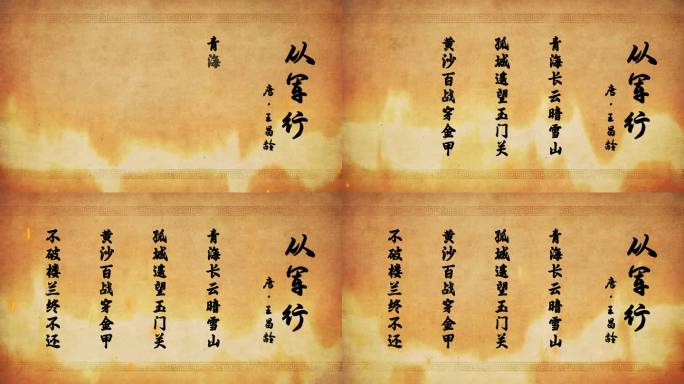 从军行
唐·王昌龄
青海
从军行
唐·王昌龄
青海长云暗雪山
孤城遥望玉门关
黄沙百战穿金甲
从军行
唐·王昌龄
青海长云暗雪山
孤城遥望玉门关
黄沙百战穿金甲
不破楼兰终不还
从军行
唐·王昌龄
青海长云暗雪山
孤城遥望玉门关
黄沙百战穿金甲
不破楼兰终不还